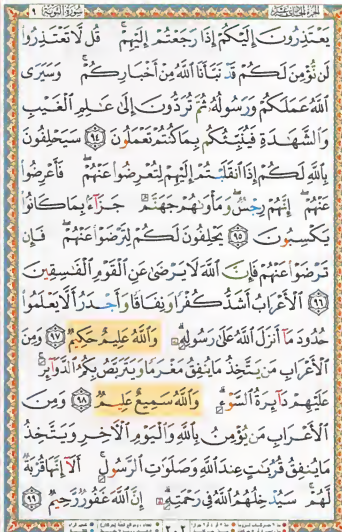 سُورَةُ التَّوْبَةِ ٩
يَعْتَذِرُونَ إِلَيْكُمْ إِذَا رَجَعْتُمْ إِلَيْهِمْ ۚ قُل لَّا تَعْتَذِرُوا
لَن نُّؤْمِنَ لَكُمْ قَدْ نَبَّأَنَا اللَّهُ مِنْ أَخْبَارِكُمْ ۚ وَسَيَرَى
اللَّهُ عَمَلَكُمْ وَرَسُولُهُ ثُمَّ تُرَدُّونَ إِلَىٰ عَالِمِ الْغَيْبِ
وَالشَّهَادَةِ فَيُنَبِّئُكُم بِمَا كُنتُمْ تَعْمَلُونَ ٩٤ سَيَحْلِفُونَ
بِاللَّهِ لَكُمْ إِذَا انقَلَبْتُمْ إِلَيْهِمْ لِتُعْرِضُوا عَنْهُمْ ۖ فَأَعْرِضُوا
عَنْهُمْ ۖ إِنَّهُمْ رِجْسٌ ۖ وَمَأْوَاهُمْ جَهَنَّمُ جَزَاءً بِمَا كَانُوا
يَكْسِبُونَ ٩٥ يَحْلِفُونَ لَكُمْ لِتَرْضَوْا عَنْهُمْ ۖ فَإِن
تَرْضَوْا عَنْهُمْ فَإِنَّ اللَّهَ لَا يَرْضَىٰ عَنِ الْقَوْمِ الْفَاسِقِينَ
٩٦ الْأَعْرَابُ أَشَدُّ كُفْرًا وَنِفَاقًا وَأَجْدَرُ أَلَّا يَعْلَمُوا
حُدُودَ مَا أَنزَلَ اللَّهُ عَلَىٰ رَسُولِهِ ۗ وَاللَّهُ عَلِيمٌ حَكِيمٌ ٩٧ وَمِنَ
الْأَعْرَابِ مَن يَتَّخِذُ مَا يُنفِقُ مَغْرَمًا وَيَتَرَبَّصُ بِكُمُ الدَّوَائِرَ ۚ
عَلَيْهِمْ دَائِرَةُ السَّوْءِ ۗ وَاللَّهُ سَمِيعٌ عَلِيمٌ ٩٨ وَمِنَ
الْأَعْرَابِ مَن يُؤْمِنُ بِاللَّهِ وَالْيَوْمِ الْآخِرِ وَيَتَّخِذُ
مَا يُنفِقُ قُرُبَاتٍ عِندَ اللَّهِ وَصَلَوَاتِ الرَّسُولِ ۚ أَلَا إِنَّهَا قُرْبَةٌ
لَّهُمْ ۚ سَيُدْخِلُهُمُ اللَّهُ فِي رَحْمَتِهِ ۗ إِنَّ اللَّهَ غَفُورٌ رَّحِيمٌ ٩٩
٢٠٢